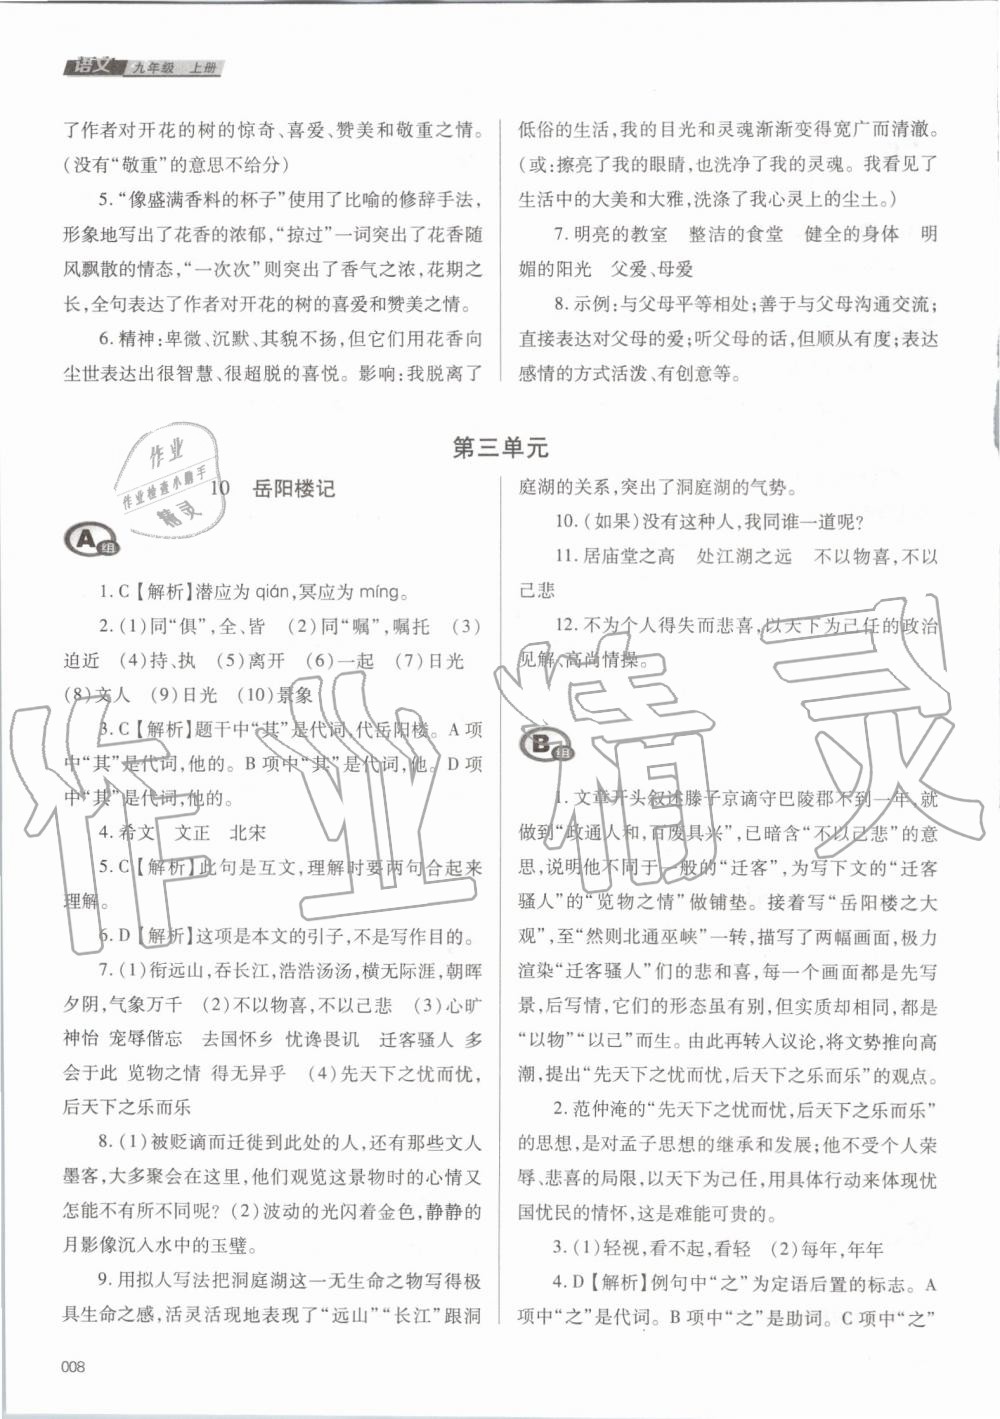 语文 九年级 上册
了作者对开花的树的惊奇、喜爱、赞美和敬重之情。
(没有“敬重”的意思不给分)
5.“像盛满香料的杯子”使用了比喻的修辞手法，
形象地写出了花香的浓郁，“掠过”一词突出了花香随
风飘散的情态，“一次次”则突出了香气之浓，花期之
长，全句表达了作者对开花的树的喜爱和赞美之情。
6. 精神：卑微、沉默、其貌不扬，但它们用花香向
尘世表达出很智慧、很超脱的喜悦。影响：我脱离了
低俗的生活，我的目光和灵魂渐渐变得宽广而清澈。
(或：擦亮了我的眼睛，也洗净了我的灵魂。我看见了
生活中的大美和大雅，洗涤了我心灵上的尘土。)
7. 明亮的教室　整洁的食堂　健全的身体　明
媚的阳光　父爱、母爱
8. 示例：与父母平等相处；善于与父母沟通交流；
直接表达对父母的爱；听父母的话，但顺从有度；表达
感情的方式活泼、有创意等。
第三单元
10　岳阳楼记
A组
1. C【解析】潜应为 qián，冥应为 míng。
2. (1)同“俱”，全、皆　(2)同“嘱”，嘱托　(3)
迫近　(4)持、执　(5)离开　(6)一起　(7)日光
(8)文人　(9)日光　(10)景象
3. C【解析】题干中“其”是代词，代岳阳楼。A 项
中“其”是代词，他的。B 项中“其”是代词，他。D 项
中“其”是代词，他的。
4. 希文　文正　北宋
5. C【解析】此句是互文，理解时要两句合起来
理解。
6. D【解析】这项是本文的引子，不是写作目的。
7. (1)衔远山，吞长江，浩浩汤汤，横无际涯，朝晖
夕阴，气象万千　(2)不以物喜，不以己悲　(3)心旷
神怡 宠辱偕忘　去国怀乡 忧谗畏讥　迁客骚人 多
会于此 览物之情 得无异乎　(4)先天下之忧而忧，
后天下之乐而乐
8. (1)被贬谪而迁徙到此处的人，还有那些文人
墨客，大多聚会在这里，他们观览这景物时的心情又
怎能不有所不同呢？(2)波动的光闪着金色，静静的
月影像沉入水中的玉璧。
9. 用拟人写法把洞庭湖这一无生命之物写得极
具生命之感，活灵活现地表现了“远山”“长江”跟洞
庭湖的关系，突出了洞庭湖的气势。
10. (如果)没有这种人，我同谁一道呢？
11. 居庙堂之高　处江湖之远　不以物喜，不以
己悲
12. 不为个人得失而悲喜，以天下为己任的政治
见解、高尚情操。
B组
1. 文章开头叙述滕子京谪守巴陵郡不到一年，就
做到“政通人和，百废具兴”，已暗含“不以己悲”的意
思，说明他不同于一般的“迁客”，为写下文的“迁客
骚人”的“览物之情”做铺垫。接着写“岳阳楼之大
观”，至“然则北通巫峡”一转，描写了两幅画面，极力
渲染“迁客骚人”们的悲和喜，每一个画面都是先写
景，后写情，它们的形态虽有别，但实质却相同，都是
“以物”“以己”而生。由此再转入议论，将文势推向高
潮，提出“先天下之忧而忧，后天下之乐而乐”的观点。
2. 范仲淹的“先天下之忧而忧，后天下之乐而乐”
的思想，是对孟子思想的继承和发展；他不受个人荣
辱、悲喜的局限，以天下为己任，用具体行动来体现忧
国忧民的情怀，这是难能可贵的。
3. (1)轻视，看不起，看轻　(2)每年，年年
4. D【解析】例句中“之”为定语后置的标志。A
项中“之”是代词。B 项中“之”是助词。C 项中“之”
008
作业
作业检查小助手
精灵
作业精灵